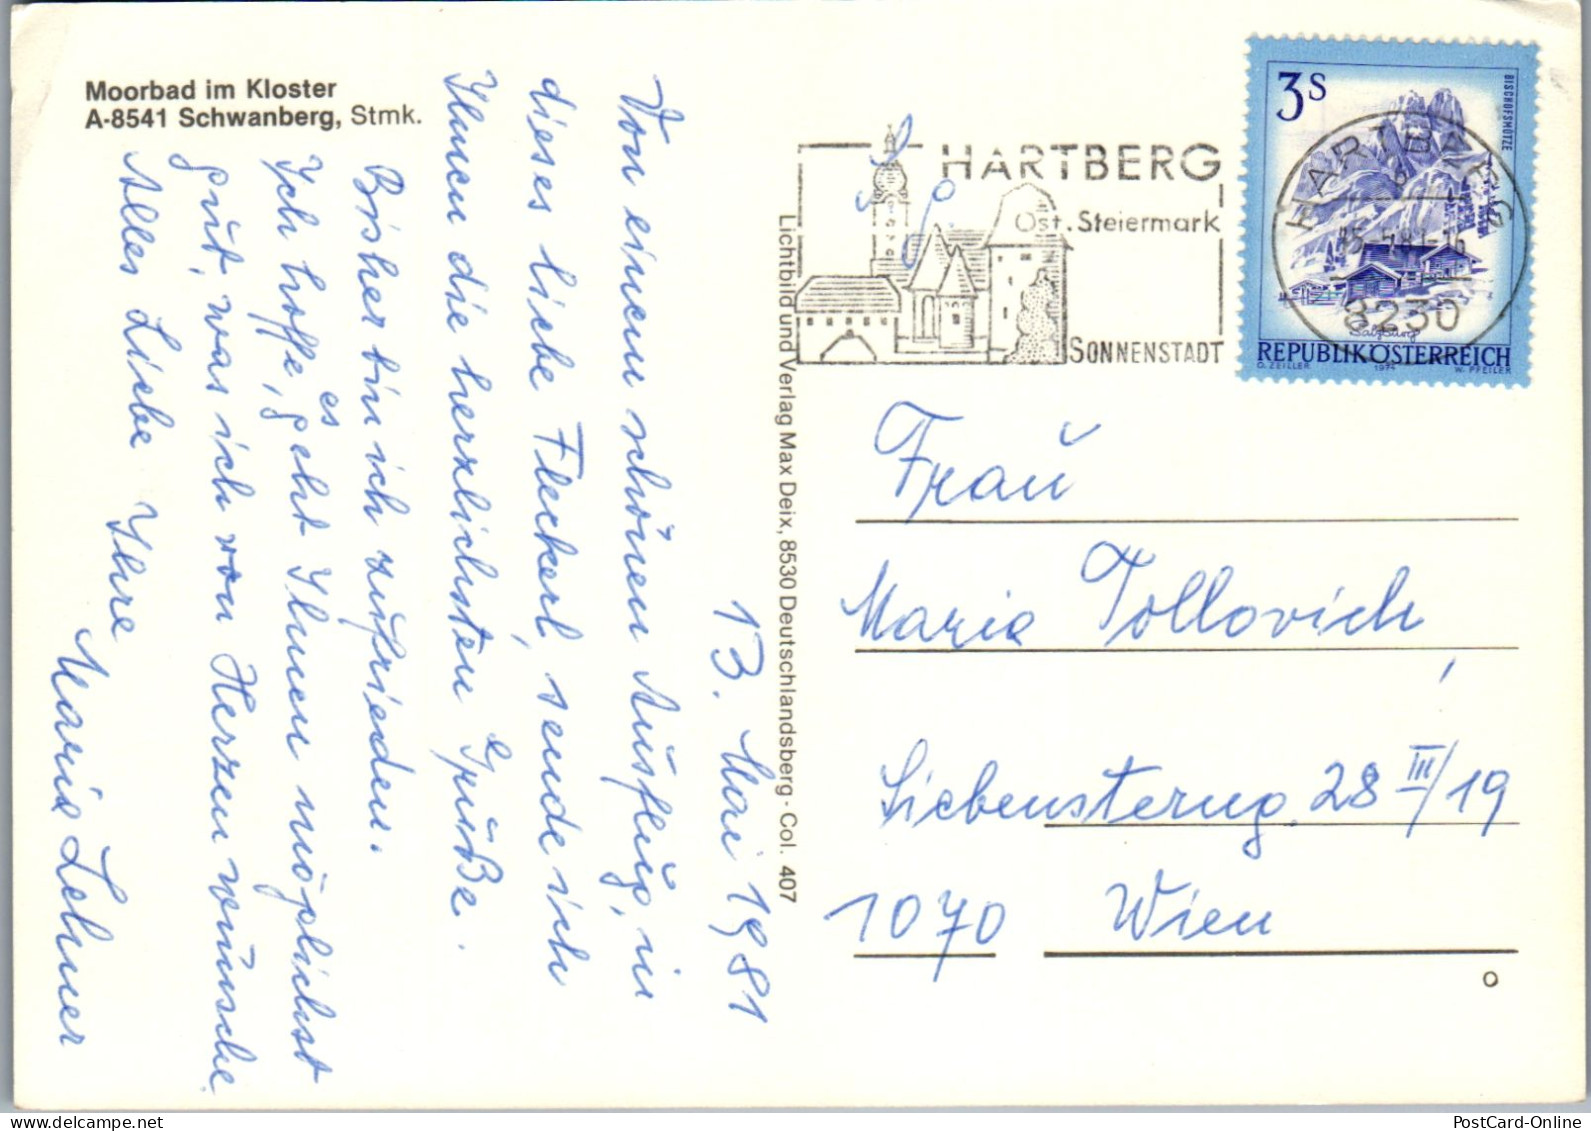 Moorbad im Kloster
A-8541 Schwanberg, Stmk.
13. Mai 1981
Von einem schönen Ausflug, in
dieses liebe Fleckerl, sende ich
Ihnen die herzlichsten Grüße.
Bisher bin ich zufrieden.
Ich hoffe, es geht Ihnen möglichst
gut, was ich von Herzen wünsche
Alles Liebe Ihre
Marie Lehner
Lichtbild und Verlag Max Deix, 8530 Deutschlandsberg · Col. 407
HARTBERG
Ost. Steiermark
SONNENSTADT
HARTBERG
8230
3 S
BISCHOFSMÜTZE
Salzburg
REPUBLIK ÖSTERREICH
O. ZEILLER 1974 W. PFEILER
Frau
Maria Tollovich
Siebensterng 28 III/19
1070 Wien
O
PostCard-Online